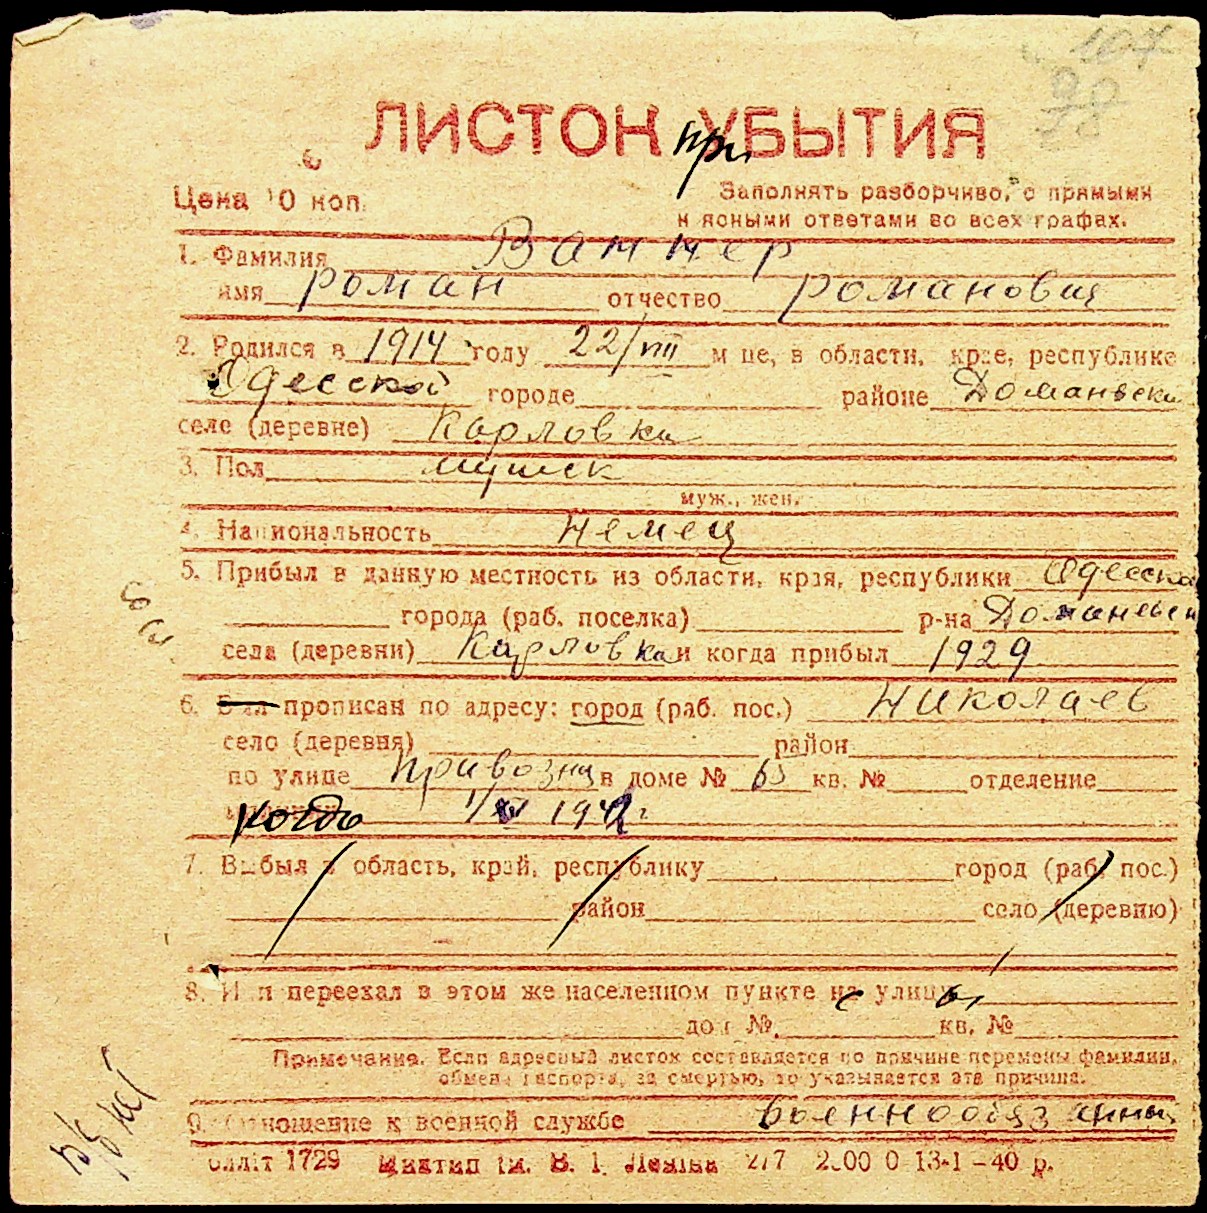 107
98
ЛИСТОК при УБЫТИЯ
Цена 10 коп.
Заполнять разборчиво, с прямыми
и ясными ответами во всех графах.
1. Фамилия Ваннер
имя Роман отчество Романович
2. Родился в 1914 году 22/VIII м це, в области, крае, республике
Одесской городе районе Доманевск
селе (деревне) Карловка
3. Пол мужск
муж., жен.
4. Национальность Немец
5. Прибыл в данную местность из области, края, республики Одесская
города (раб. поселка) р-на Доманевск
села (деревни) Карловка и когда прибыл 1929
6. Был прописан по адресу: город (раб. пос.) Николаев
село (деревня) район
по улице Привозная в доме № 63 кв. № отделение
когда 1942 г
7. Выбыл в область, край, республику город (раб. пос.)
район село (деревню)
8. Или переехал в этом же населенном пункте на улицу
дом № кв. №
Примечание. Если адресный листок составляется по причине перемены фамилии,
обмена паспорта, за смертью, то указывается эта причина.
9. Отношение к военной службе военнообязанный
1729 ім. В. І. Леніна 13-1-40 р.